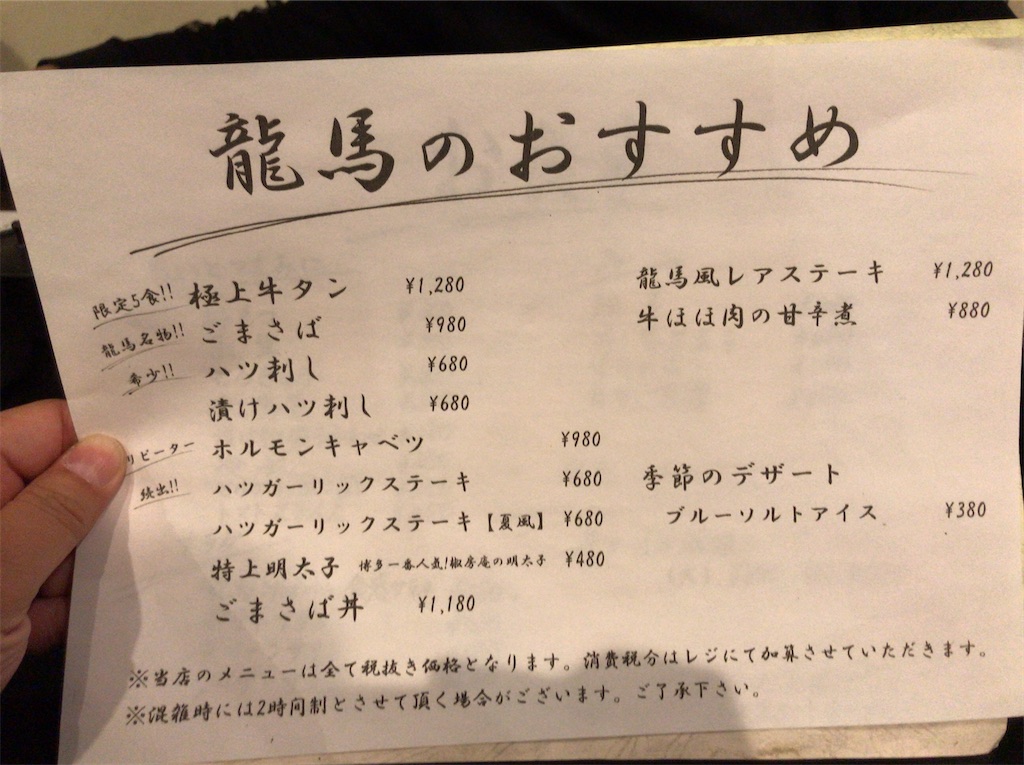 龍馬のおすすめ
限定5食!! 極上牛タン ¥1,280
龍馬名物!! ごまさば ¥980
希少!! ハツ刺し ¥680
漬けハツ刺し ¥680
リピーター ホルモンキャベツ ¥980
続出!! ハツガーリックステーキ ¥680
ハツガーリックステーキ【夏風】 ¥680
特上明太子 博多一番人気!椒房庵の明太子 ¥480
ごまさば丼 ¥1,180
龍馬風レアステーキ ¥1,280
牛ほほ肉の甘辛煮 ¥880
季節のデザート
ブルーソルトアイス ¥380
※当店のメニューは全て税抜き価格となります。消費税分はレジにて加算させていただきます。
※混雑時には2時間制とさせて頂く場合がございます。ご了承下さい。